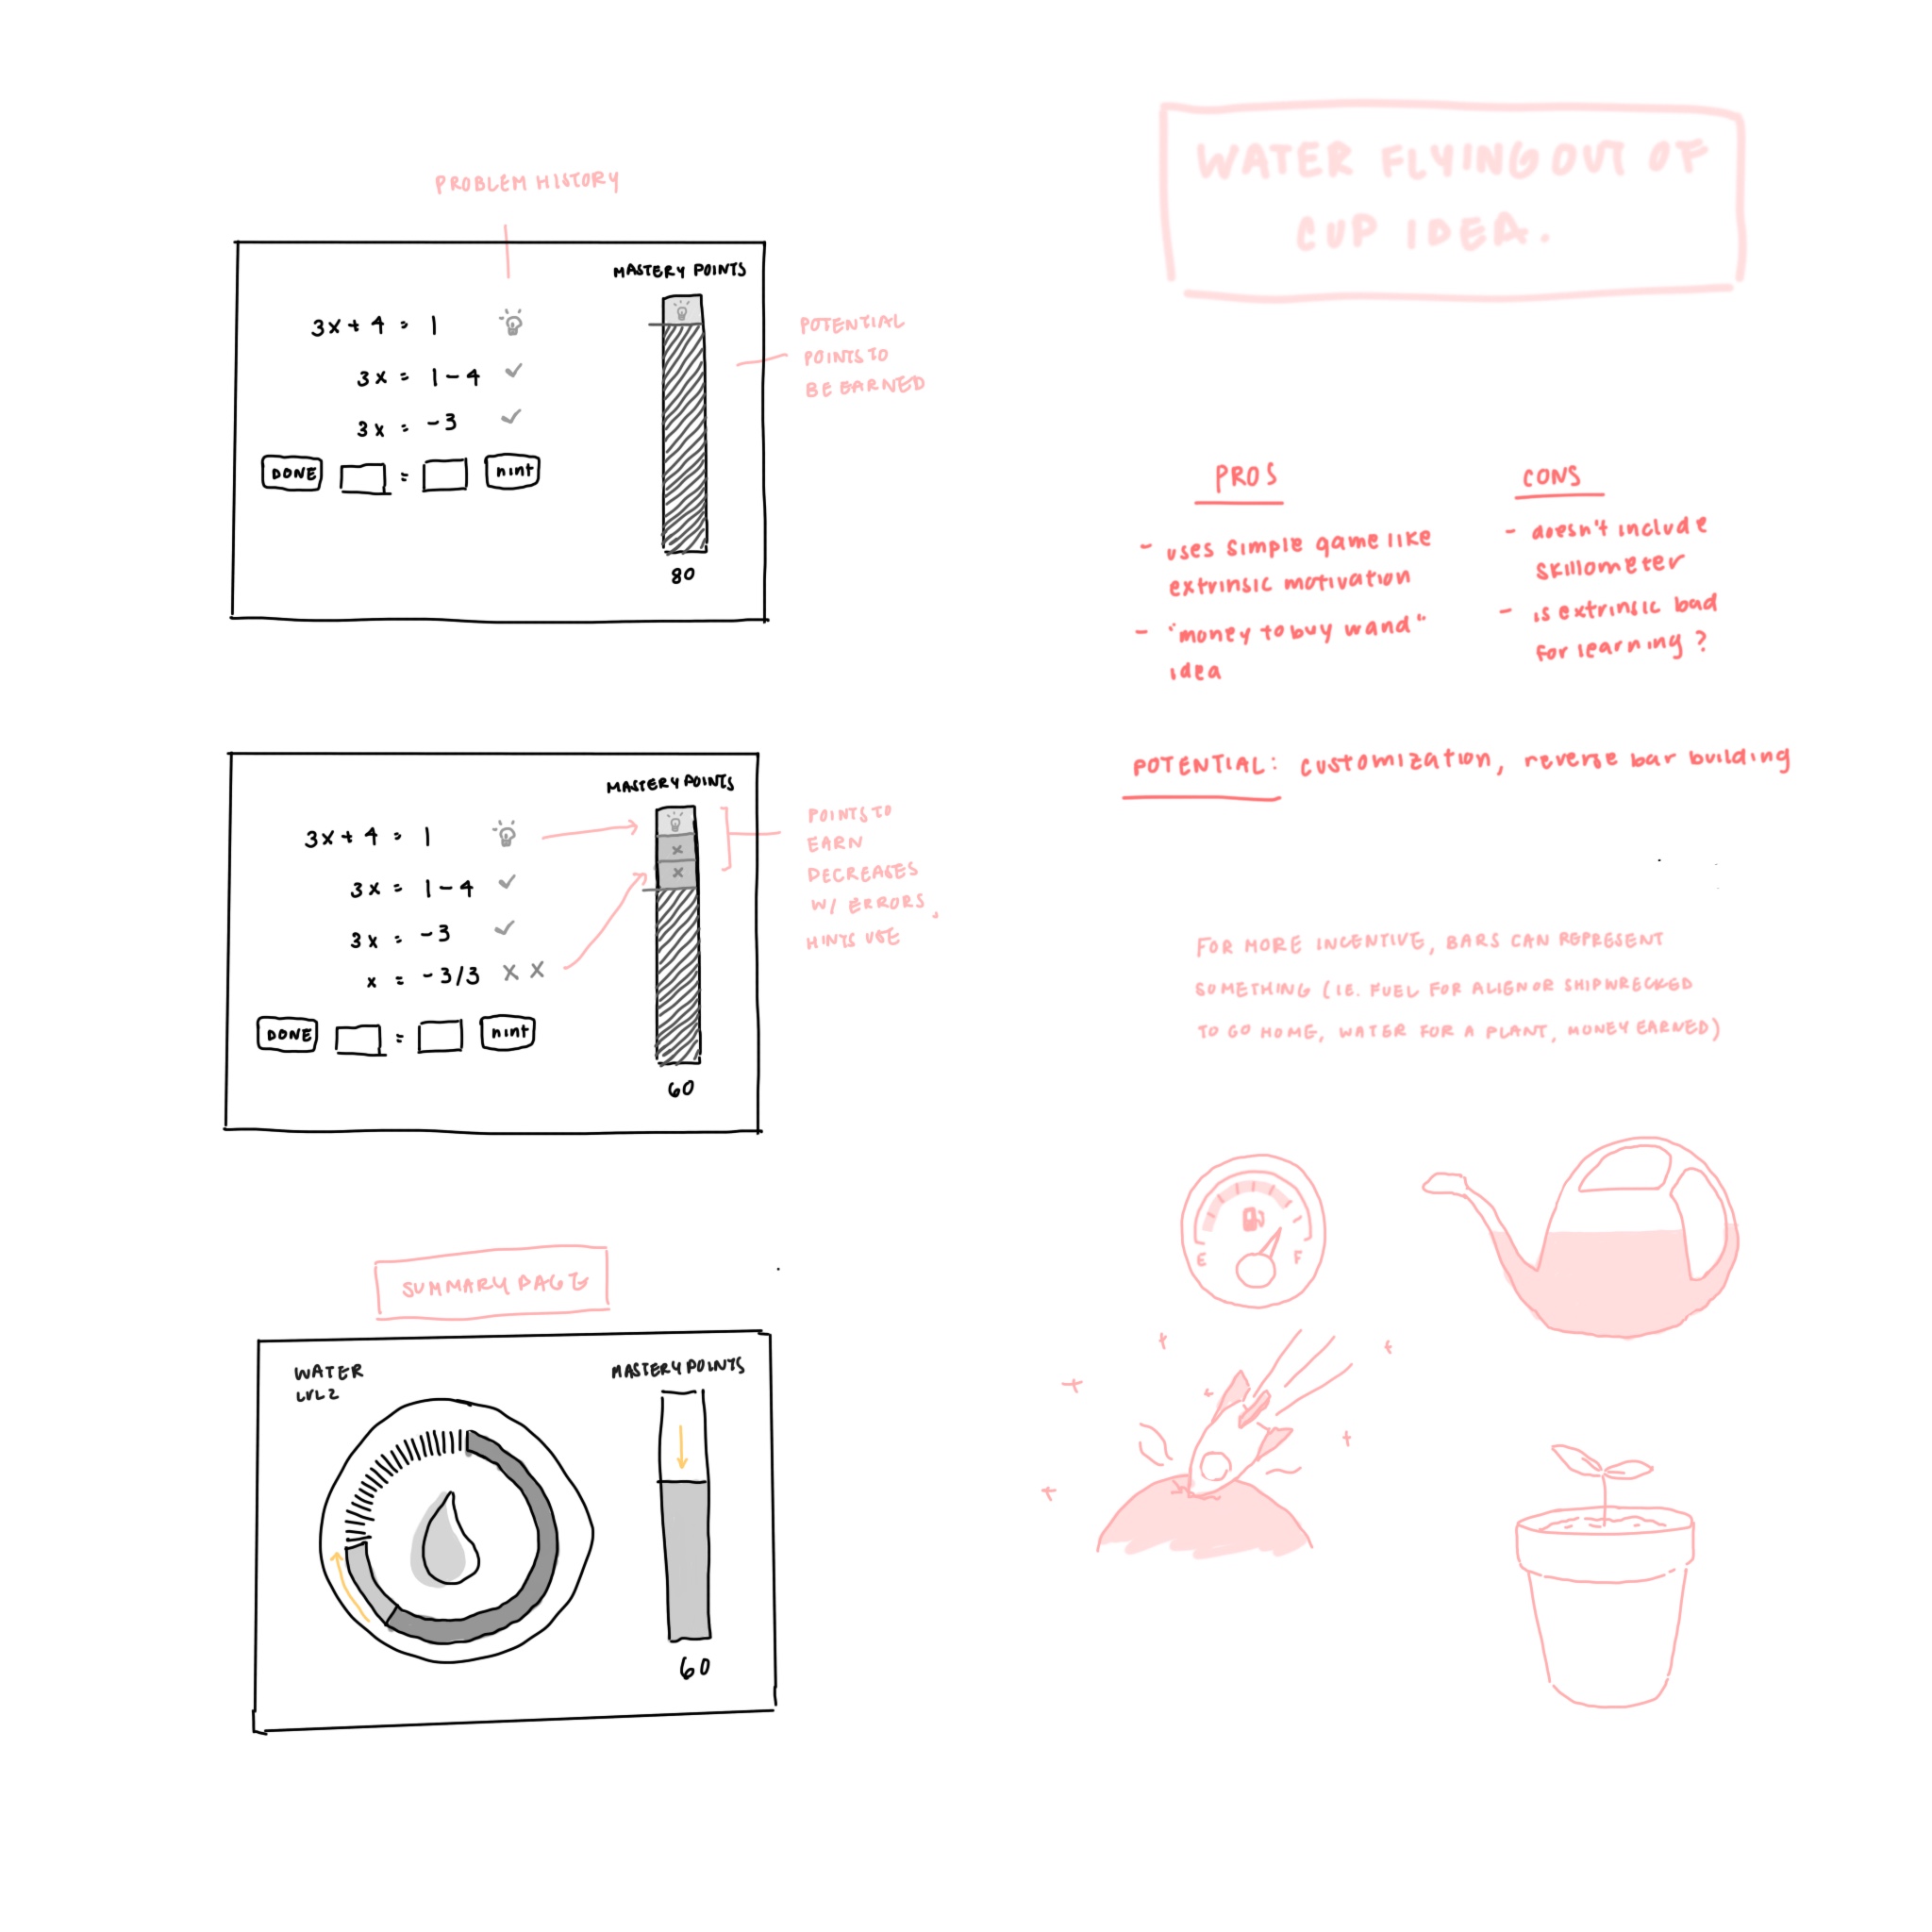 PROBLEM HISTORY
MASTERY POINTS
3x + 4 = 1
3x = 1 - 4
3x = -3
DONE = hint
80
POTENTIAL
POINTS TO
BE EARNED
MASTERY POINTS
3x + 4 = 1
3x = 1 - 4
3x = -3
x = -3/3 X X
DONE = hint
x
x
60
POINTS TO
EARN
DECREASES
W/ ERRORS,
HINTS USE
SUMMARY PAGE
WATER
LVL 2
MASTERY POINTS
60
WATER FLYING OUT OF
CUP IDEA.
PROS
- uses simple game like
extrinsic motivation
- "money to buy wand"
idea
CONS
- doesn't include
skillometer
- is extrinsic bad
for learning?
POTENTIAL: customization, reverse bar building
FOR MORE INCENTIVE, BARS CAN REPRESENT
SOMETHING (IE. FUEL FOR ALIGN OR SHIPWRECKED
TO GO HOME, WATER FOR A PLANT, MONEY EARNED)
E F